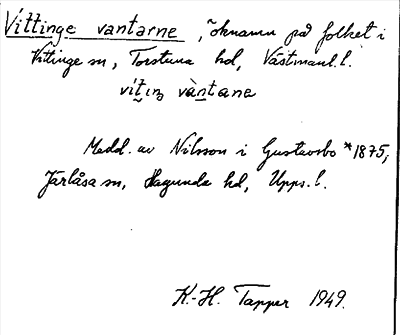 Vittinge vantarne, öknamn på folket i
Vittinge sn, Torstuna hd, Västmanl. l.
vítiŋ vàntane
Medd. av Nilsson i Gustavsbo *1875,
Järlåsa sn, Hagunda hd, Upps. l.
K.-H. Tapper 1949.